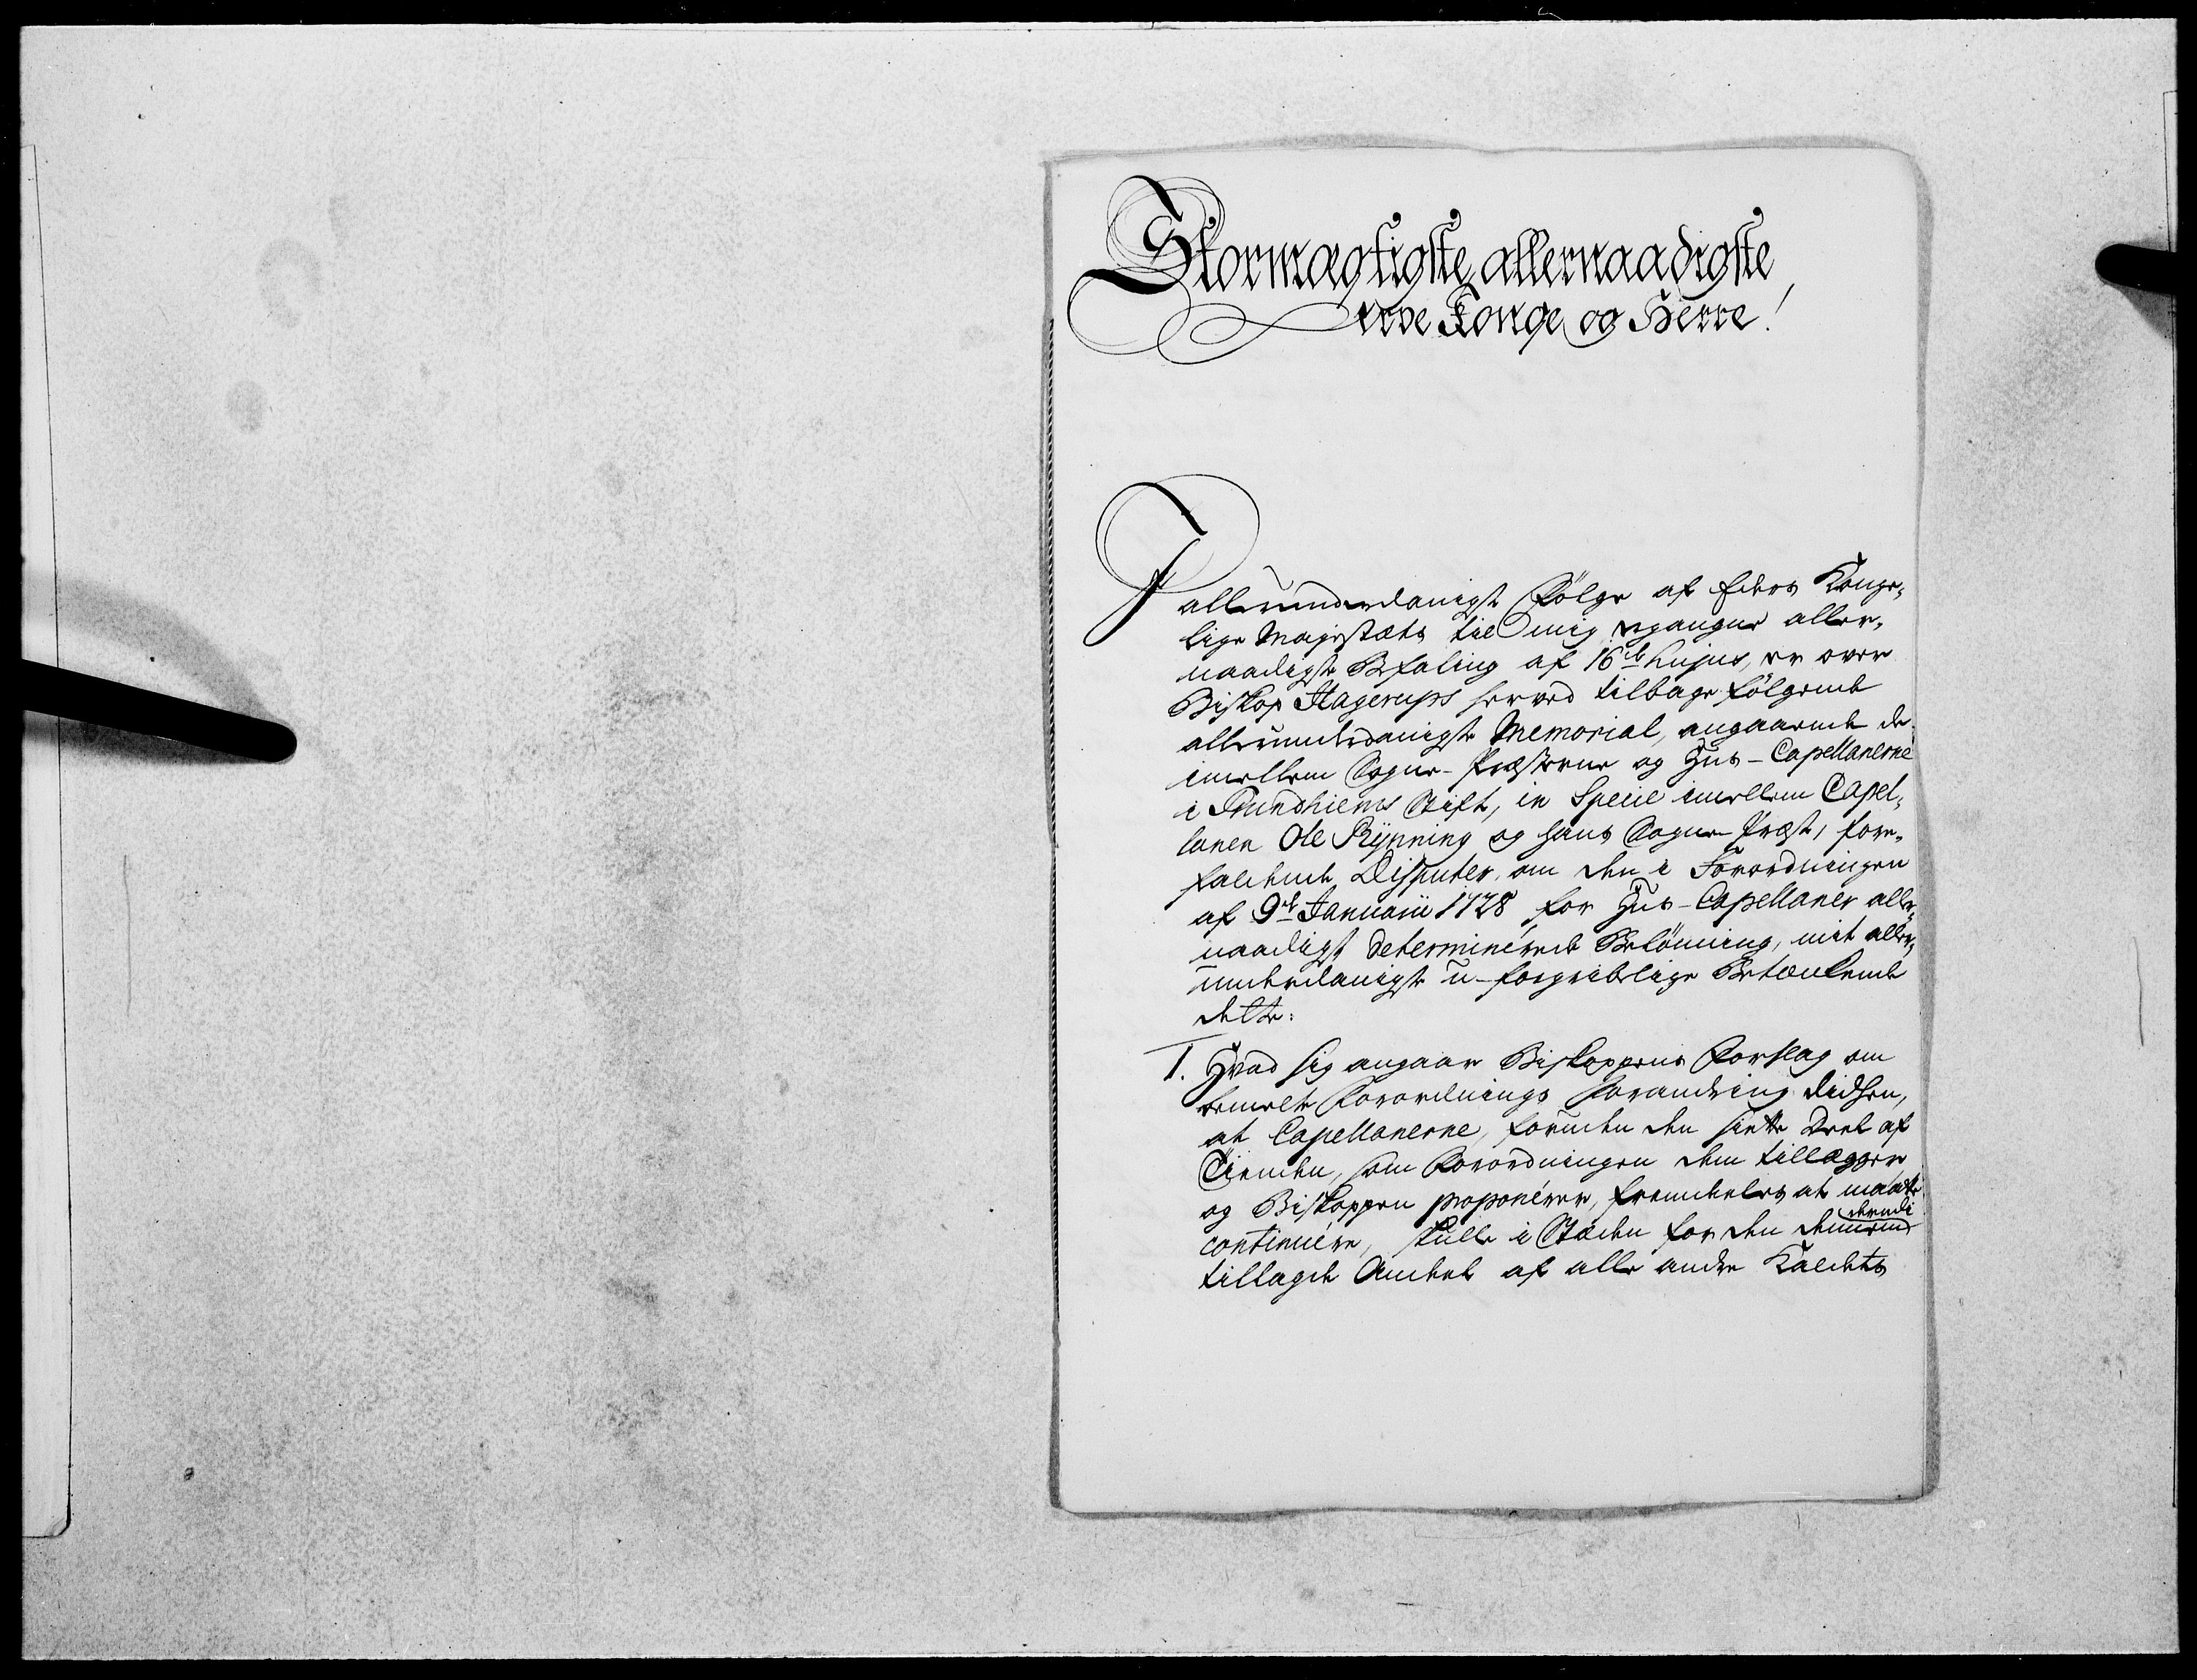 Stormægtigste, allernaadigste
Arve Konge og Herre!
I
allerunderdanigst Følge af Eders Konge-
lige Majestæts til mig ergangne aller-
naadigste Befaling af 16de hujus, er over
Biskop Hagerups herved tilbage følgende
allerunderdanigste Memorial, angaaende de
imellem Sogne-Præsterne og Huus-Capellanerne
i Trundhiems Stift, in Specie imellem Capel-
lanen Ole Rÿnning og hans Sogne-Præst, fore-
faldende Disputer, om den i Forordningen
af 9de Januarii 1728 for Huus-Capellaner aller-
naadigst determinerede Belönning, mit aller-
underdanigste u-forgribelige Betænkende
dette:
1. Hvad sig angaar Biskoppens Forslag om
bemelte Forordnings Forandring didhen,
at Capellanerne, foruden den siette Deel af
Tienden, som Forordningen dem tillægger
og Biskoppen proponerer, fremdeles at maatte
continuere, skulle i Stæden for den dem
derudi
tillagde Andeel af alle andre Kaldets